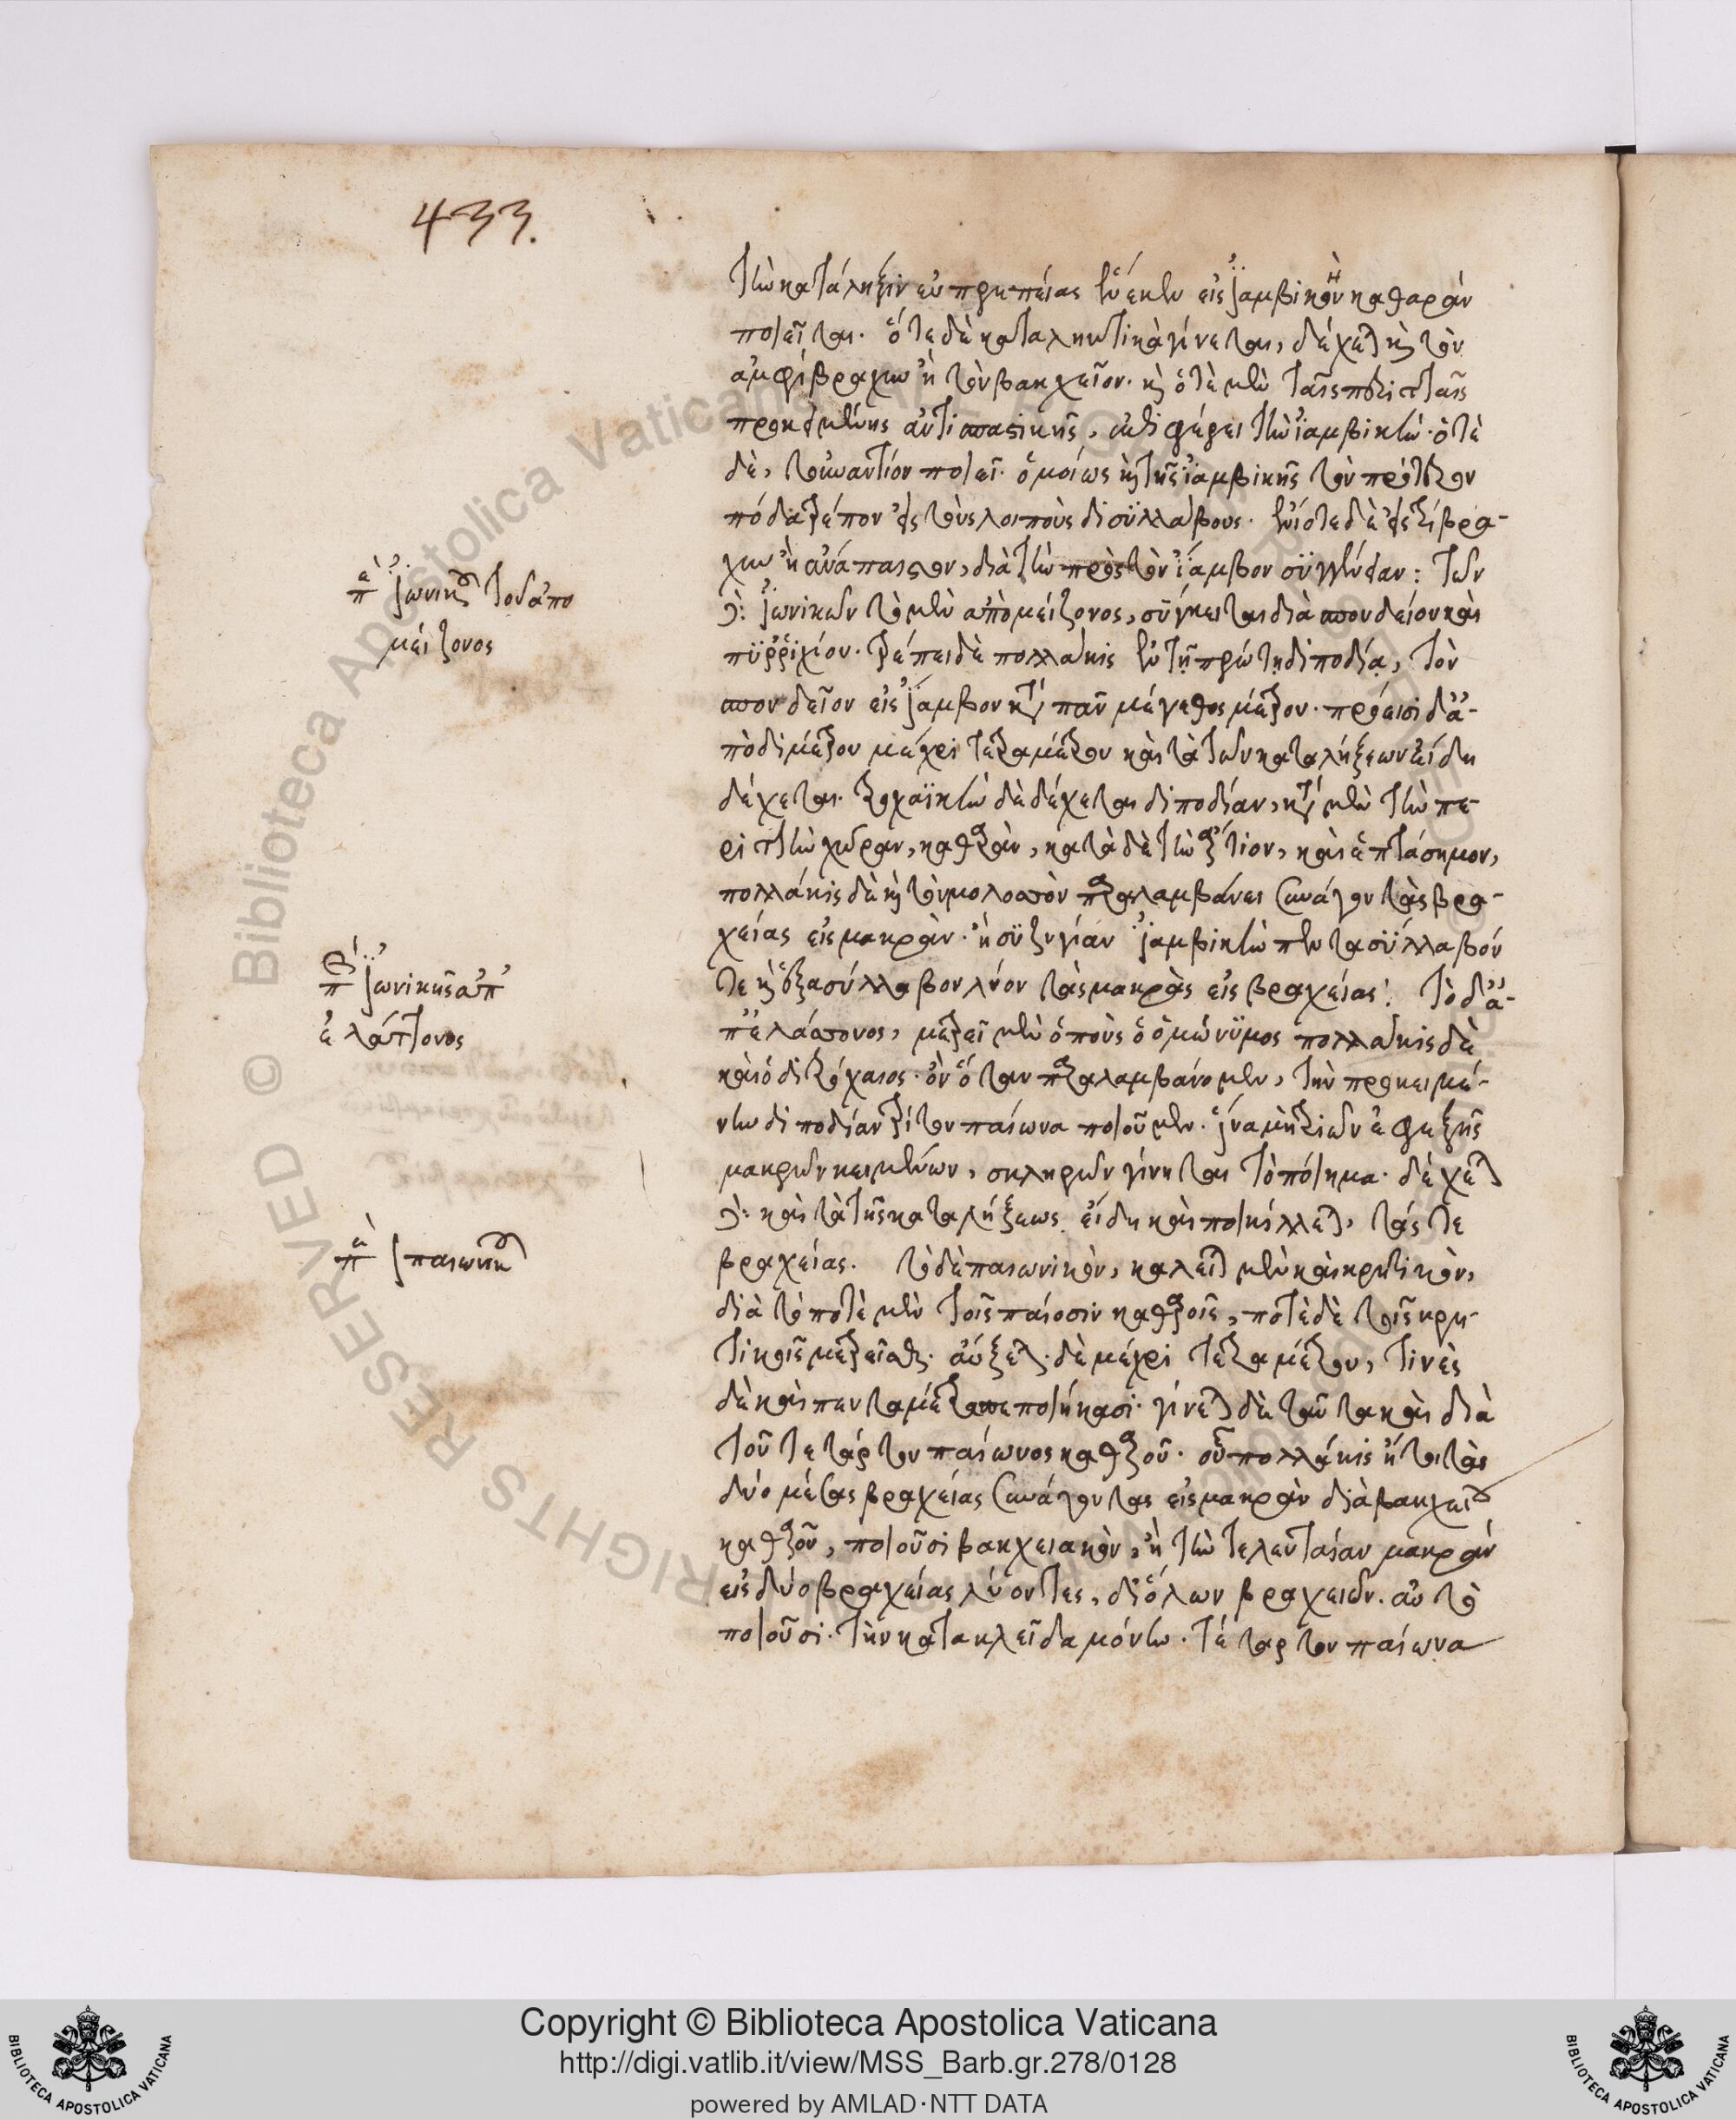 433.
τὴν κατάληξιν εὐπρεπείας ἕνεκεν εἰς ἰαμβικὴν καθαρὰν
ποιεῖται. ὅτε δὲ καταληκτικὰ γίνεται, δέχεται καὶ τὸν
ἀμφίβραχυν ἢ τὸν βακχεῖον. καὶ ὁτὲ μὲν ταῖς περιτταῖς
προκειμένης ἀντισπαστικῆς, ἐπιφέρει τὴν ἰαμβικήν. ὁτὲ
δὲ, τοὐναντίον ποιεῖ. ὁμοίως καὶ τῆς ἰαμβικῆς τὸν πρῶτον
πόδα τρέπον εἰς τοὺς λοιποὺς δισυλλάβους. ἐνίοτε δὲ εἰς τρίβρα-
χυν ἢ ἀνάπαιστον, διὰ τὴν πρὸς τὸν ἴαμβον συγγένειαν: τῶν
δὲ ἰωνικῶν τὸ μὲν ἀπὸ μείζονος, σύγκειται διὰ σπονδείου καὶ
πυρριχίου. τρέπει δὲ πολλάκις ἐν τῇ πρώτῃ διποδίᾳ, τὸν
σπονδεῖον εἰς ἴαμβον κατὰ πᾶν μέγεθος μέτρου. πρόεισι δ' ἀ-
πὸ διμέτρου μέχρι τετραμέτρου καὶ τὰ τῶν καταλήξεων εἴδη
δέχεται. τροχαϊκὴν δὲ δέχεται διποδίαν, κατὰ μὲν τὴν πε-
ριττὴν χώραν, καθαρὰν, κατὰ δὲ τὴν ἄρτιον, καὶ ἑπτάσημον,
πολλάκις δὲ καὶ τὸν μολοσσὸν παραλαμβάνει συνάγον τὰς βρα-
χείας εἰς μακρὰν. ἢ συζυγίαν ἰαμβικὴν πεντασύλλαβόν
τε καὶ ἑξασύλλαβον λύον τὰς μακρὰς εἰς βραχείας: τὸ δ' ἀ-
π' ἐλάσσονος, μετρεῖ μὲν ὁ ποὺς ὁ ὁμώνυμος πολλάκις δὲ
καὶ ὁ διτρόχαιος. ὃν ὅταν παραλαμβάνομεν, τὴν προκειμέ-
νην διποδίαν τρίτον παίωνα ποιοῦμεν. ἵνα μὴ τριῶν ἐφεξῆς
μακρῶν κειμένων, σκληρὸν γίνηται τὸ πόιημα. δέχεται
δὲ καὶ τὰ τῆς καταλήξεως εἴδη καὶ ποικίλλεται, τάς τε
βραχείας. τὸ δὲ παιωνικὸν, καλεῖται μὲν καὶ κρητικὸν,
διὰ τὸ ποτὲ μὲν τοῖς παίοσιν καθαροῖς, ποτὲ δὲ τοῖς κρη-
τικοῖς μετρεῖσθαι. αὔξεται δὲ μέχρι τετραμέτρου, τινὲς
δὲ καὶ πενταμέτρα πεποιήκασι. γίνεται δὲ ταῦτα καὶ διὰ
τοῦ τετάρτου παίωνος καθαροῦ. οὗ πολλάκις ἤτοι τὰς
δύο μέσας βραχείας συνάγοντας εἰς μακρὰν διὰ βακχείου
καθαροῦ, ποιοῦσι βακχειακὸν, ἢ τὴν τελευταίαν μακρὰν
εἰς δύο βραχείας λύοντες, δι' ὅλων βραχειῶν. αὐτὸ
ποιοῦσι. τὴν κατακλεῖδα μόνην. τέταρτον παίωνα
περὶ ἰωνικοῦ τοῦ ἀπὸ
μείζονος
περὶ ἰωνικῆς ἀπ'
ἐλάττονος
περὶ παιωνικοῦ
Copyright © Biblioteca Apostolica Vaticana
http://digi.vatlib.it/view/MSS_Barb.gr.278/0128
powered by AMLAD·NTT DATA
BIBLIOTECA APOSTOLICA VATICANA
BIBLIOTECA APOSTOLICA VATICANA